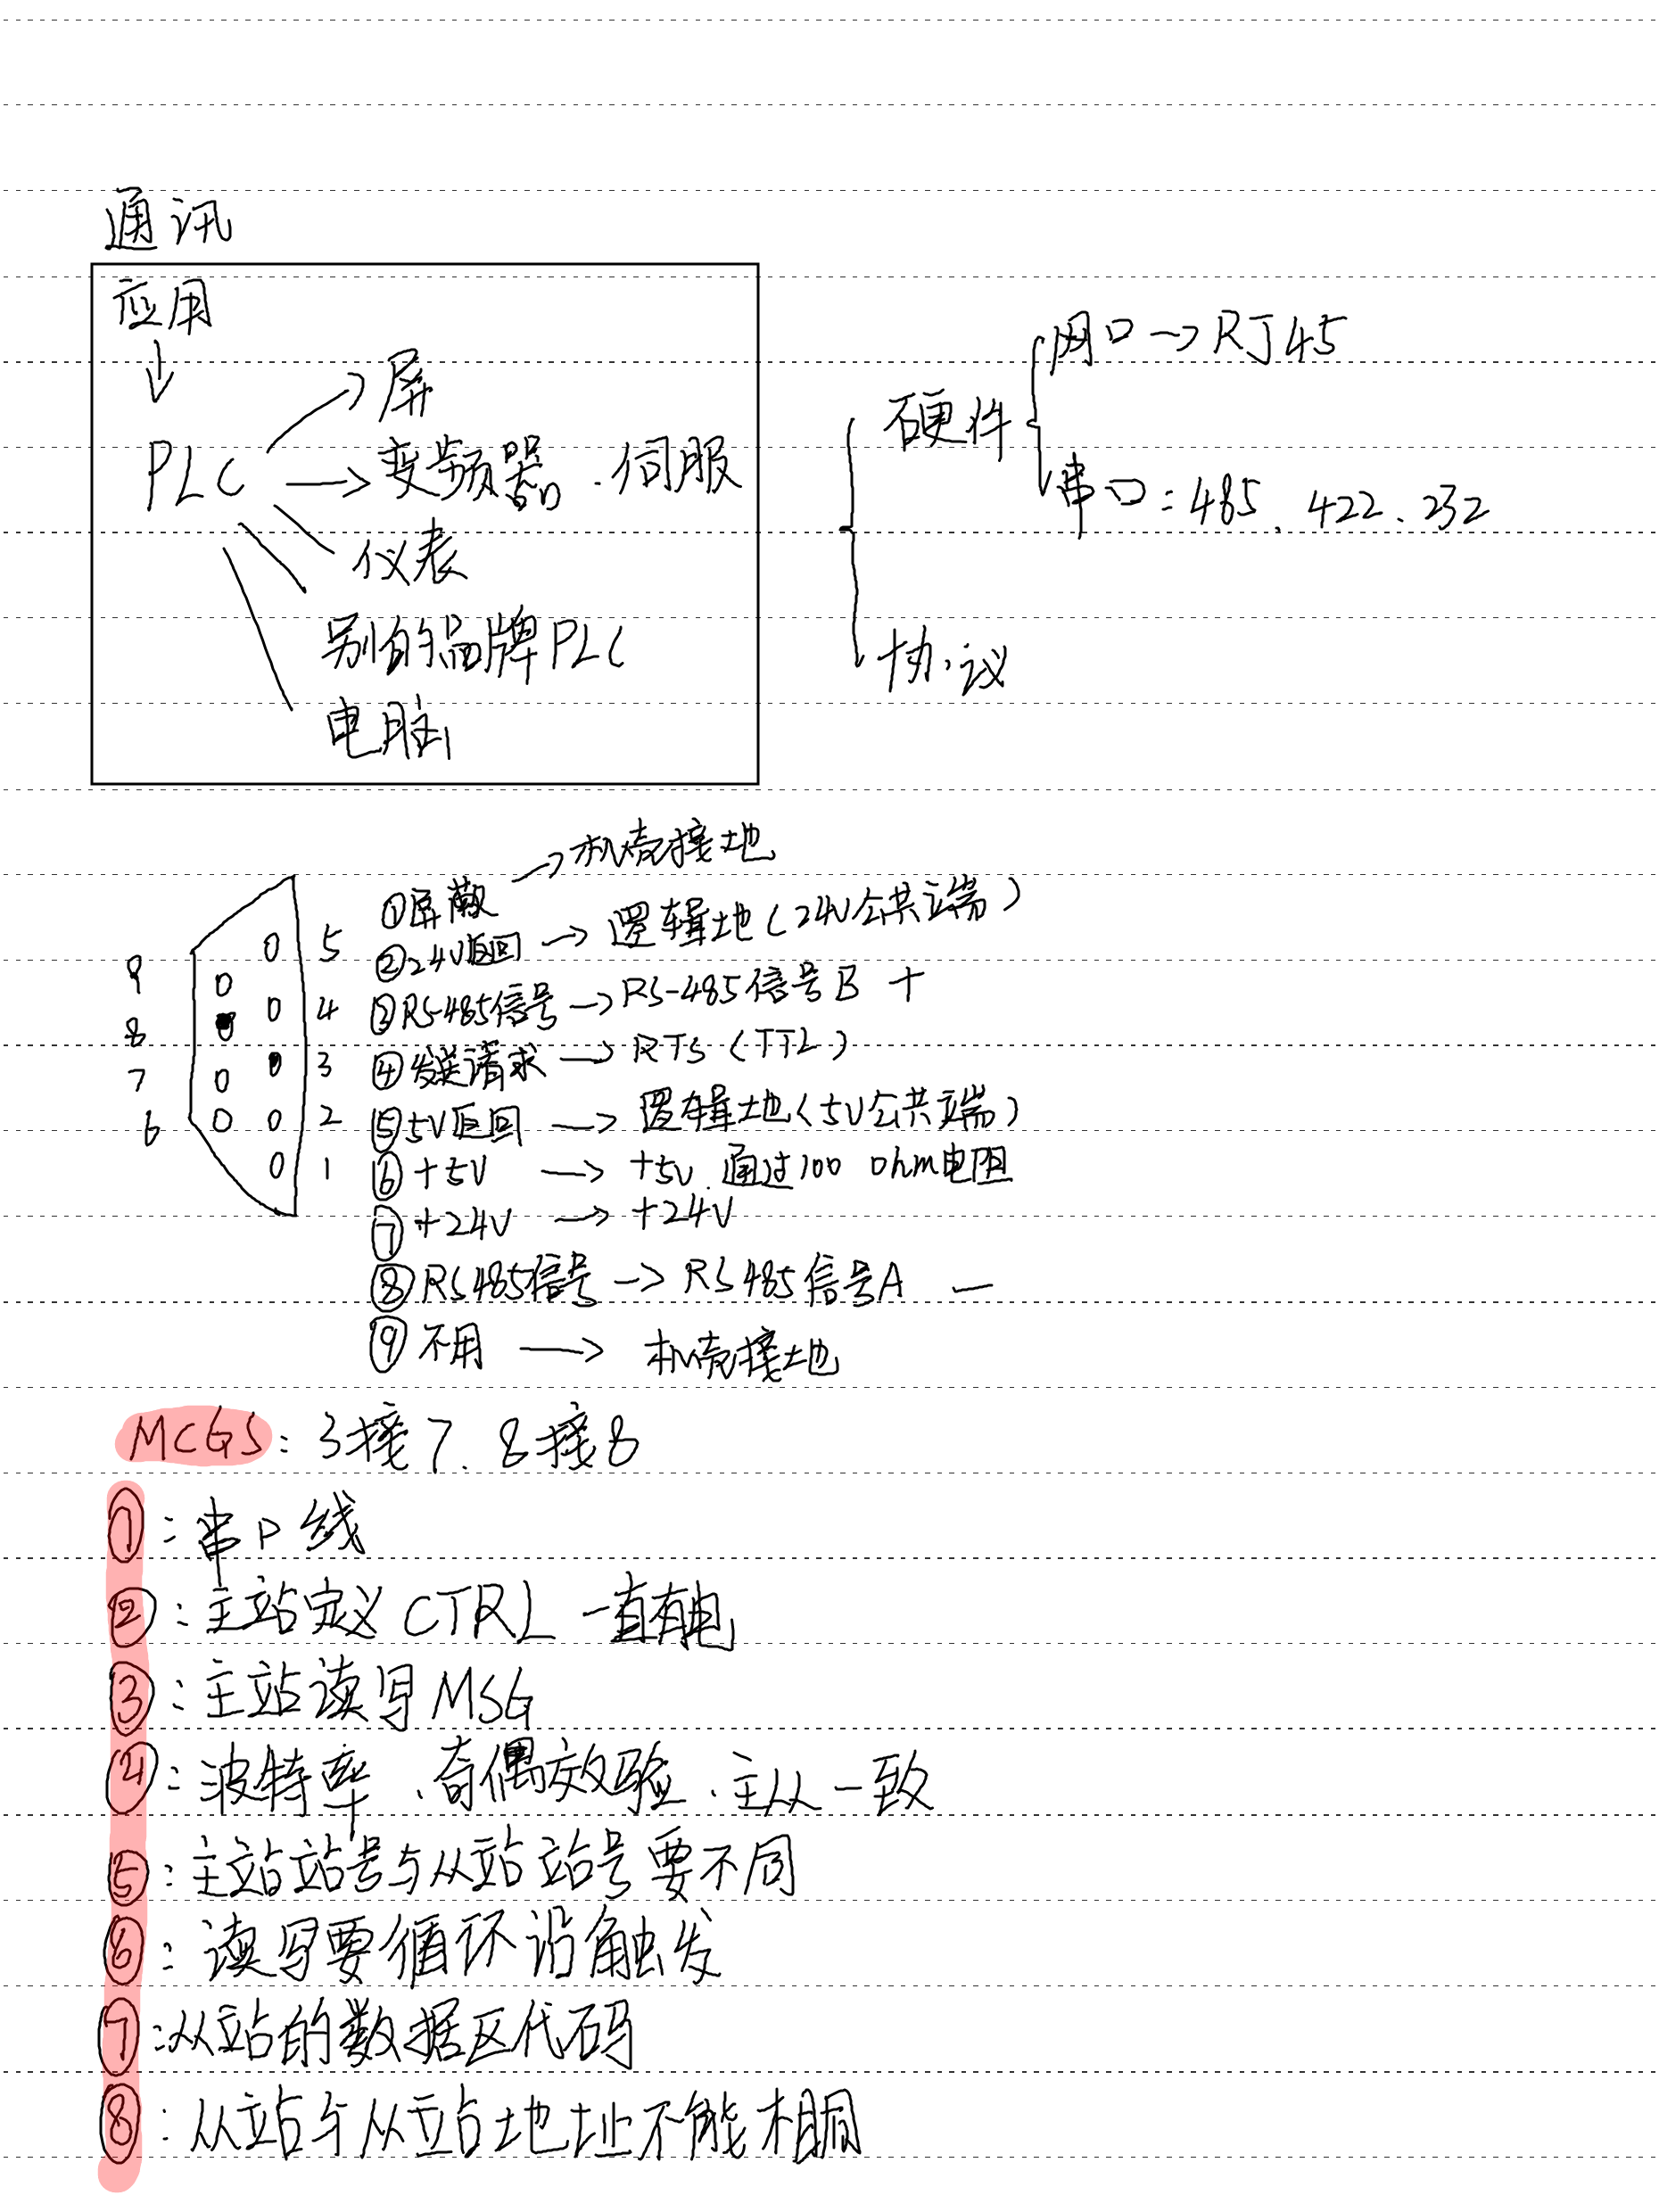 通讯
应用
PLC
屏
变频器、伺服
仪表
别的品牌PLC
电脑
硬件
网口→RJ45
串口:485、422、232
协议
9
8
7
6
5
4
3
2
1
①屏蔽→机壳接地
②24V返回→逻辑地(24V公共端)
③RS-485信号→RS-485信号B +
④发送请求→RTS(TTL)
⑤5V返回→逻辑地(5V公共端)
⑥+5V→+5V、通过100 ohm电阻
⑦+24V→+24V
⑧RS485信号→RS485信号A —
⑨不用→机壳接地
MCGS:3接7、8接8
①:串口线
②:主站定义CTRL 一直有电
③:主站读写MSG
④:波特率、奇偶效验、主从一致
⑤:主站站号与从站站号要不同
⑥:读写要循环设触发
⑦:从站的数据区代码
⑧:从站与从站地址不能相同